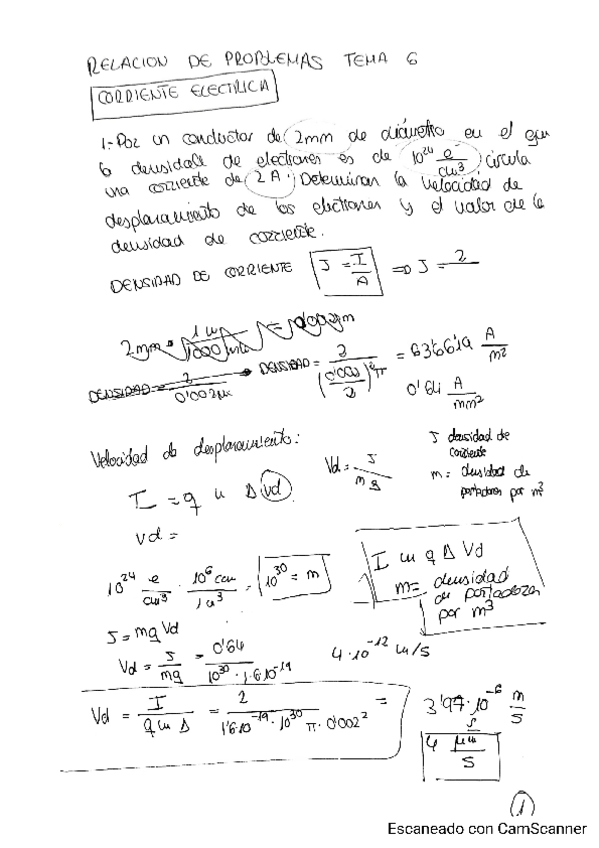 RELACION DE PROBLEMAS TEMA 6
CORRIENTE ELECTRICA
1.- Por un conductor de 2mm de diámetro en el que
la densidad de electrones es de 10^24 e/cm^3 circula
una corriente de 2 A. Determinar la velocidad de
desplazamiento de los electrones y el valor de la
densidad de corriente.
DENSIDAD DE CORRIENTE J = I/A => J = 2/
2mm
DENSIDAD = 2/0'002
DENSIDAD = 2/(0'002/2)^2 π = 636619 A/m^2
0'64 A/mm^2
Velocidad de desplazamiento:
Vd = J/mq
J densidad de corriente
m = densidad de portadores por m^3
I = q n Δ vd
vd =
10^24 e/cm^3 · 10^6 cm/1 m^3 = 10^30 = m
I m q Δ Vd
m = densidad de portadores por m^3
J = mq Vd
Vd = J/mq = 0'64/10^30 · 1'6·10^-19
4·10^-12 m/s
Vd = I/q m Δ = 2/1'6·10^-19 · 10^30 π · 0'002^2 = 3'97·10^-6 m/s
4 μm/s
1
Escaneado con CamScanner